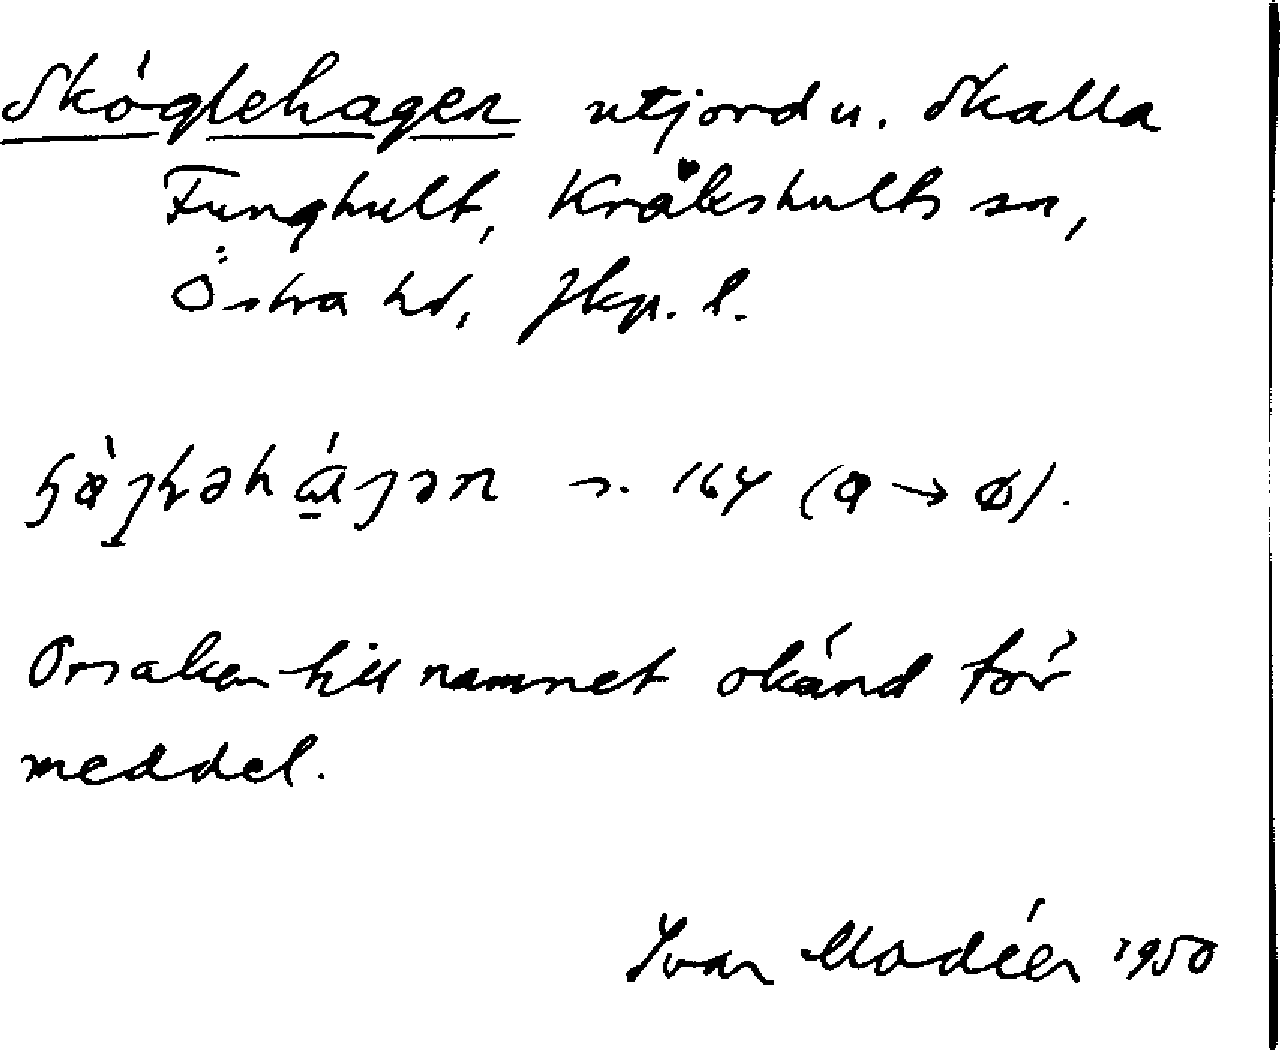 Sköglehagen utjord u. Skalla
Funghult, Kråkeshults sn,
Östra hd, Jkp. l.
s. 164 (ꝋ → ø).
Orsaken till namnet okänd för
meddel.
Ivar Modéer 1950